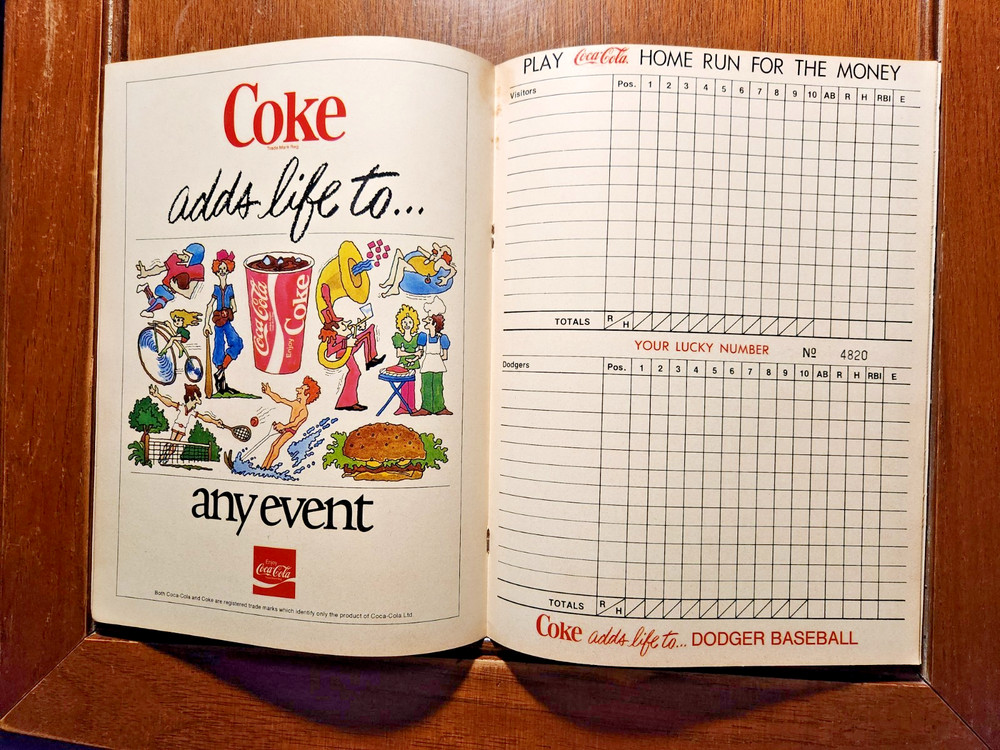 Coke
Trade Mark Reg.
adds life to...
Coca-Cola
Enjoy Coke
any event
Enjoy
Coca-Cola
Both Coca-Cola and Coke are registered trade marks which identify only the product of Coca-Cola Ltd.
PLAY Coca-Cola HOME RUN FOR THE MONEY
Visitors Pos. 1 2 3 4 5 6 7 8 9 10 AB R H RBI E
TOTALS R H
YOUR LUCKY NUMBER Nº 4820
Dodgers Pos. 1 2 3 4 5 6 7 8 9 10 AB R H RBI E
TOTALS R H
Coke adds life to... DODGER BASEBALL